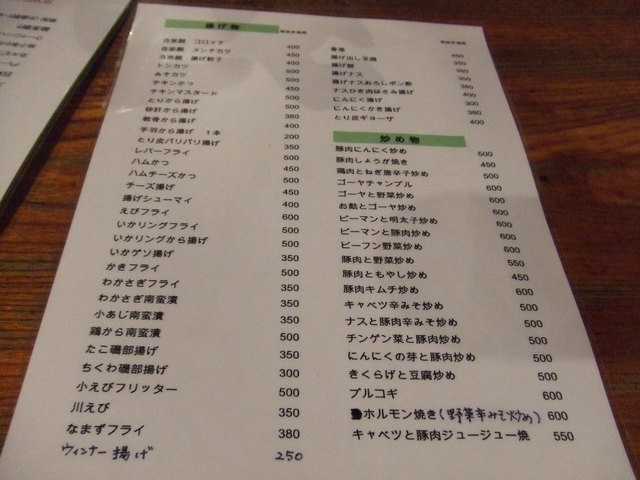 揚げ物
自家製 コロッケ 400
自家製 メンチカツ 450
自家製 揚げ餃子 400
トンカツ 500
みそカツ 500
チキンかつ 500
チキンマスタード 450
とりから揚げ 500
砂肝から揚げ 380
軟骨から揚げ 400
手羽から揚げ 1本 200
とり皮パリパリ揚げ 350
レバーフライ 500
ハムかつ 500
ハムチーズかつ 500
チーズ揚げ 450
揚げシューマイ 400
えびフライ 600
いかリングフライ 500
いかリングから揚げ 500
いかゲソ揚げ 350
かきフライ 500
わかさぎフライ 350
わかさぎ南蛮漬 350
小あじ南蛮漬 350
鶏から南蛮漬 500
たこ磯部揚げ 350
ちくわ磯部揚げ 300
小えびフリッター 500
川えび 350
なまずフライ 380
ウィンナー揚げ 250
春巻 450
揚げ出し豆腐 350
揚げ餅 350
揚げナス 350
揚げナスおろしポン酢 380
ナスひき肉はさみ揚げ 450
にんにく揚げ 300
にんにくかき揚げ 380
とり皮ギョーザ 400
炒め物
豚肉にんにく炒め 500
豚肉しょうが焼き 450
鶏肉とねぎ唐辛子炒め 500
ゴーヤチャンプル 600
ゴーヤと野菜炒め 600
お麩とゴーヤ炒め 600
ピーマンと明太子炒め 600
ピーマンと豚肉炒め 600
ビーフン野菜炒め 600
豚肉と野菜炒め 550
豚肉ともやし炒め 450
豚肉キムチ炒め 600
キャベツ辛みそ炒め 500
ナスと豚肉辛みそ炒め 500
チンゲン菜と豚肉炒め 500
にんにくの芽と豚肉炒め 500
きくらげと豆腐炒め 500
プルコギ 600
ホルモン焼き(野菜辛みそ炒め) 600
キャベツと豚肉ジュージュー焼 550